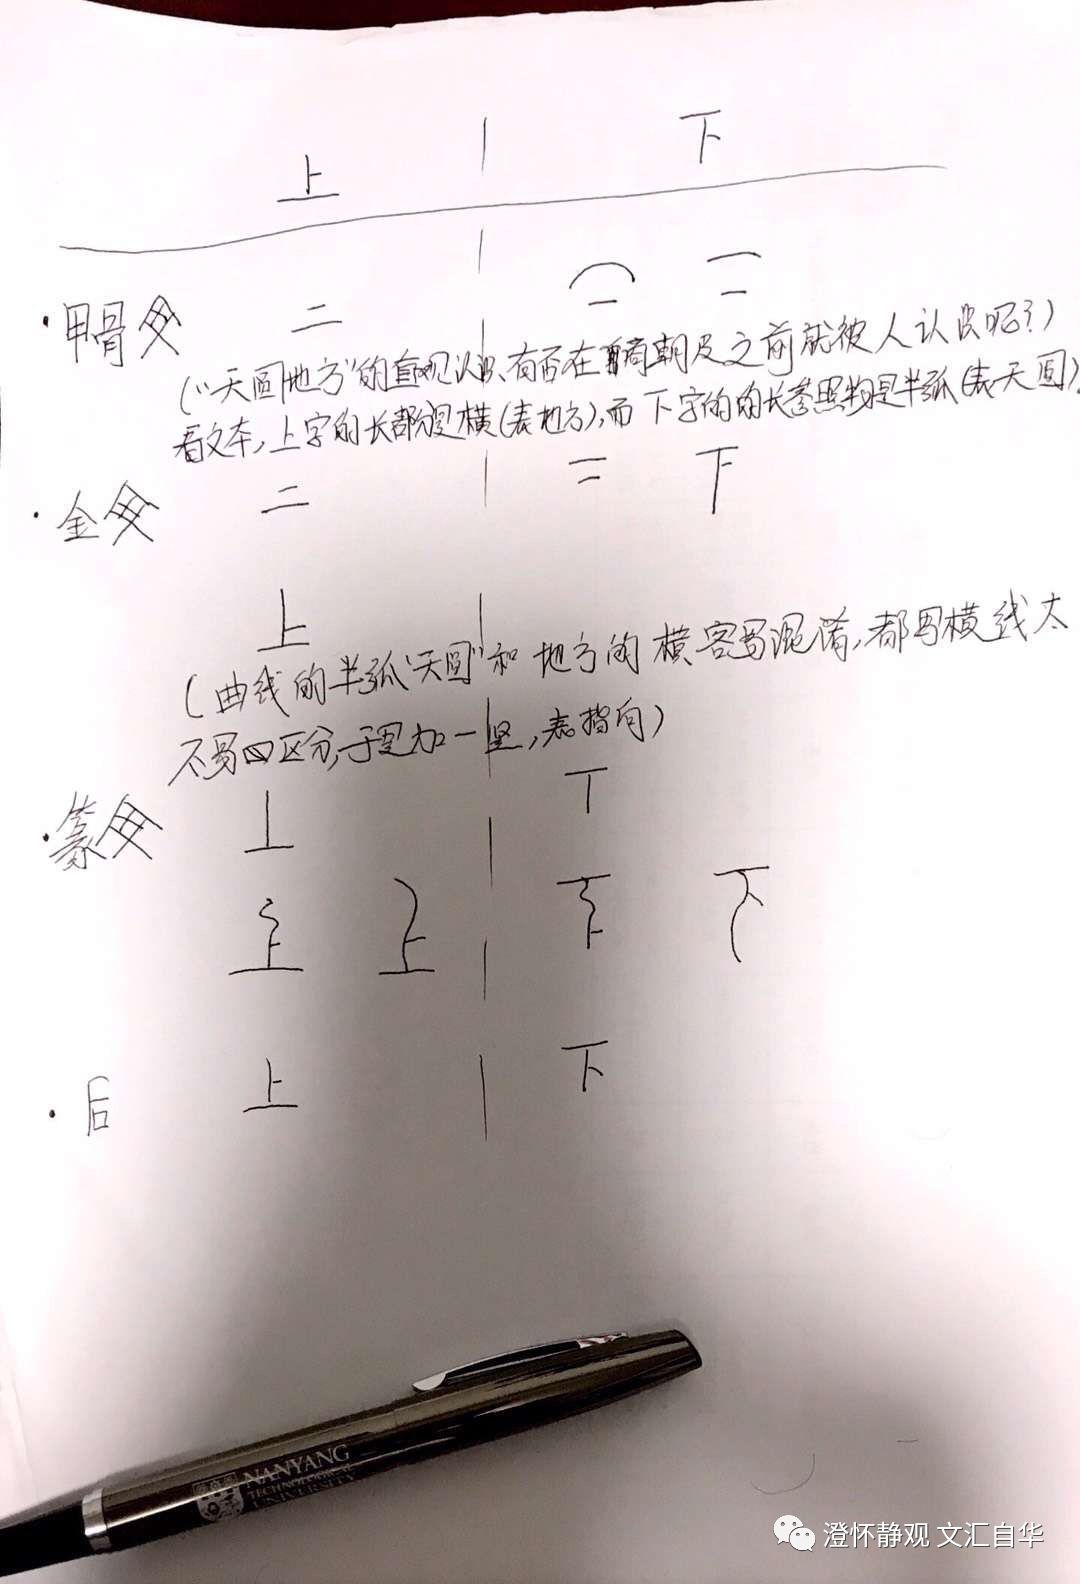 上 下
甲骨文 二
(“天圆地方”的直观认识,有否在商朝及之前就被人认识呢?)
看文本,上字的长部分是横(表地方),而下字的的长参照物是半弧(表天圆)
金文 二 下
上
(曲线的半弧“天圆”和地方的横容易混淆,都写横线太
不易区分,于是加一竖,表指向)
篆文 丄 丅
后 上 下
NANYANG
TECHNOLOGICAL
UNIVERSITY
澄怀静观 文汇自华